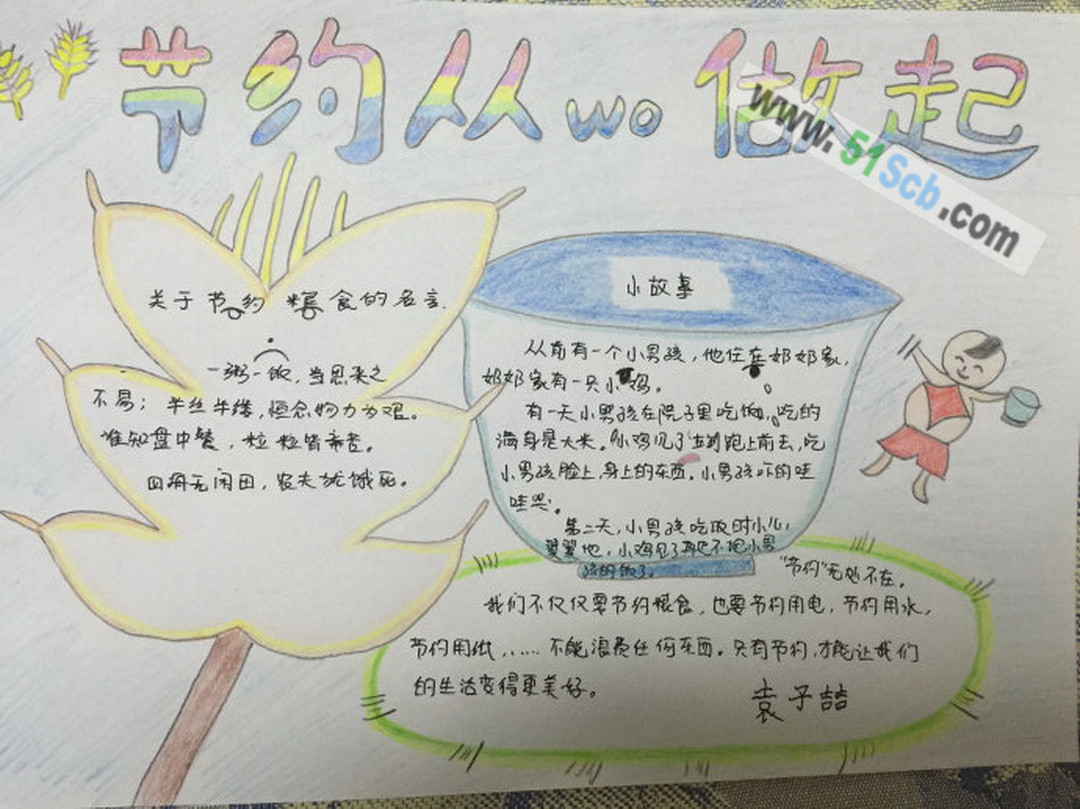 节约从wo做起
www.51Scb.com
关于节约粮食的名言.
一粥一饭,当思来之
不易；半丝半缕,恒念物力为艰。
谁知盘中餐,粒粒皆辛苦。
四海无闲田,农夫犹饿死。
小故事
从前有一个小男孩,他住在奶奶家,
奶奶家有一只小鸡。
有一天小男孩在院子里吃饭,吃的
满身是大米。小鸡见了 跑上前去,吃
小男孩脸上,身上的东西。小男孩吓的哇
哇哭。
第二天,小男孩吃饭时小心
翼翼地,小鸡见了再也不抢小男
孩的饭了。
“节约”无处不在。
我们不仅仅要节约粮食,也要节约用电,节约用水,
节约用纸,……不能浪费任何东西。只有节约,才能让我们
的生活变得更美好。
袁子喆